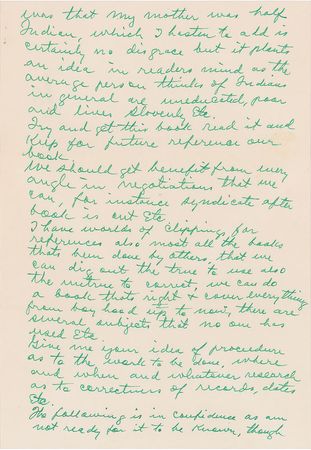 was that my mother was half
Indian, which I hasten to add is
certainly no disgrace but it plants
an idea in readers mind as the
average person thinks of Indians
in general are uneducated, poor
and lives slovenly Etc.
Try and get this book read it and
Keep for future reference our
book.
We should get benefit from every
angle in negotiations that we
can, for instance syndicate after
book is out Etc
I have worlds of clippings for
references also most all the books
thats been done by others, that we
can dig out the true to use also
the untrue to correct, we can do
a book thats right & cover everything
from boy hood up to now, there are
several subjects that no one has
used Etc.
Give me your idea of procedure
as to the work to be done, where
and when and whatever research
as to correctness of records, dates
Etc.
The following is in confidence as am
not ready for it to be known, though